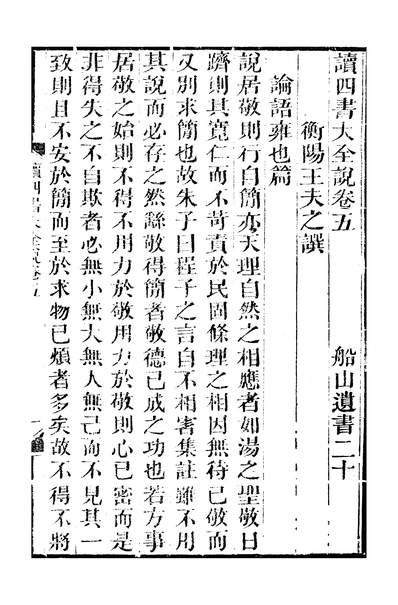 讀四書大全說卷五 船山遺書二十
衡陽王夫之譔
論語雍也篇
說居敬則行自簡亦天理自然之相應者如湯之聖敬日
躋則其寬仁而不苛責於民固條理之相因無待已敬而
又別求簡也故朱子曰程子之言自不相害集註雖不用
其說而必存之然繇敬得簡者敬德已成之功也若方事
居敬之始則不得不用力於敬用力於敬則心已密而是
非得失之不自欺者必無小無大無人無己而不見其一
致則且不安於簡而至於求物已煩者多矣故不得不將
讀四書大全說卷五